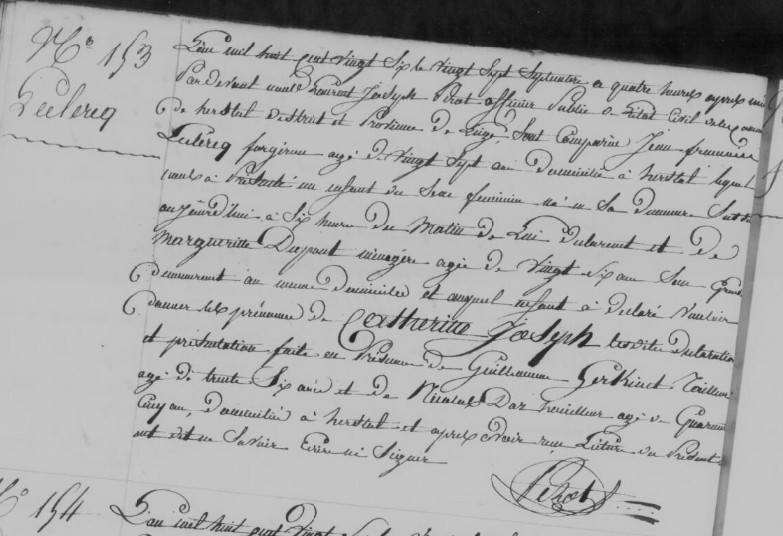 N° 153
Leclercq
L'an mil huit cent vingt Six le vingt Sept Septembre a quatre heures apres midi
Pardevant nous Laurent Joseph Perot officier Public de L'état Civil de la
de herstal district et Province de Liége, Sont Comparus Jean francois
Leclercq forgeron agé de vingt Sept ans domicilié à herstal lequel
nous à Présenté un enfant du Sexe feminin né en Sa demeure
aujourd'hui à Six heures du matin de Lui declarant et de
Margueritte Dupont ménagère agée de vingt Six ans Son
demeurant au meme domicile et auquel enfant à declaré vouloir
donner les prénoms de Catherine Joseph lesdite declaration
et présentation faite en Présence de Guillaume Gerkinet
agé de trente Six ans et de Nicolas Dar houilleur agé de Quarante
Cinq ans, domicilié à herstal et apres avoir reçu Lecture du Présent
ont dit ne Savoir Ecrire ni Signer
Perot
N° 154
L'an mil huit cent vingt